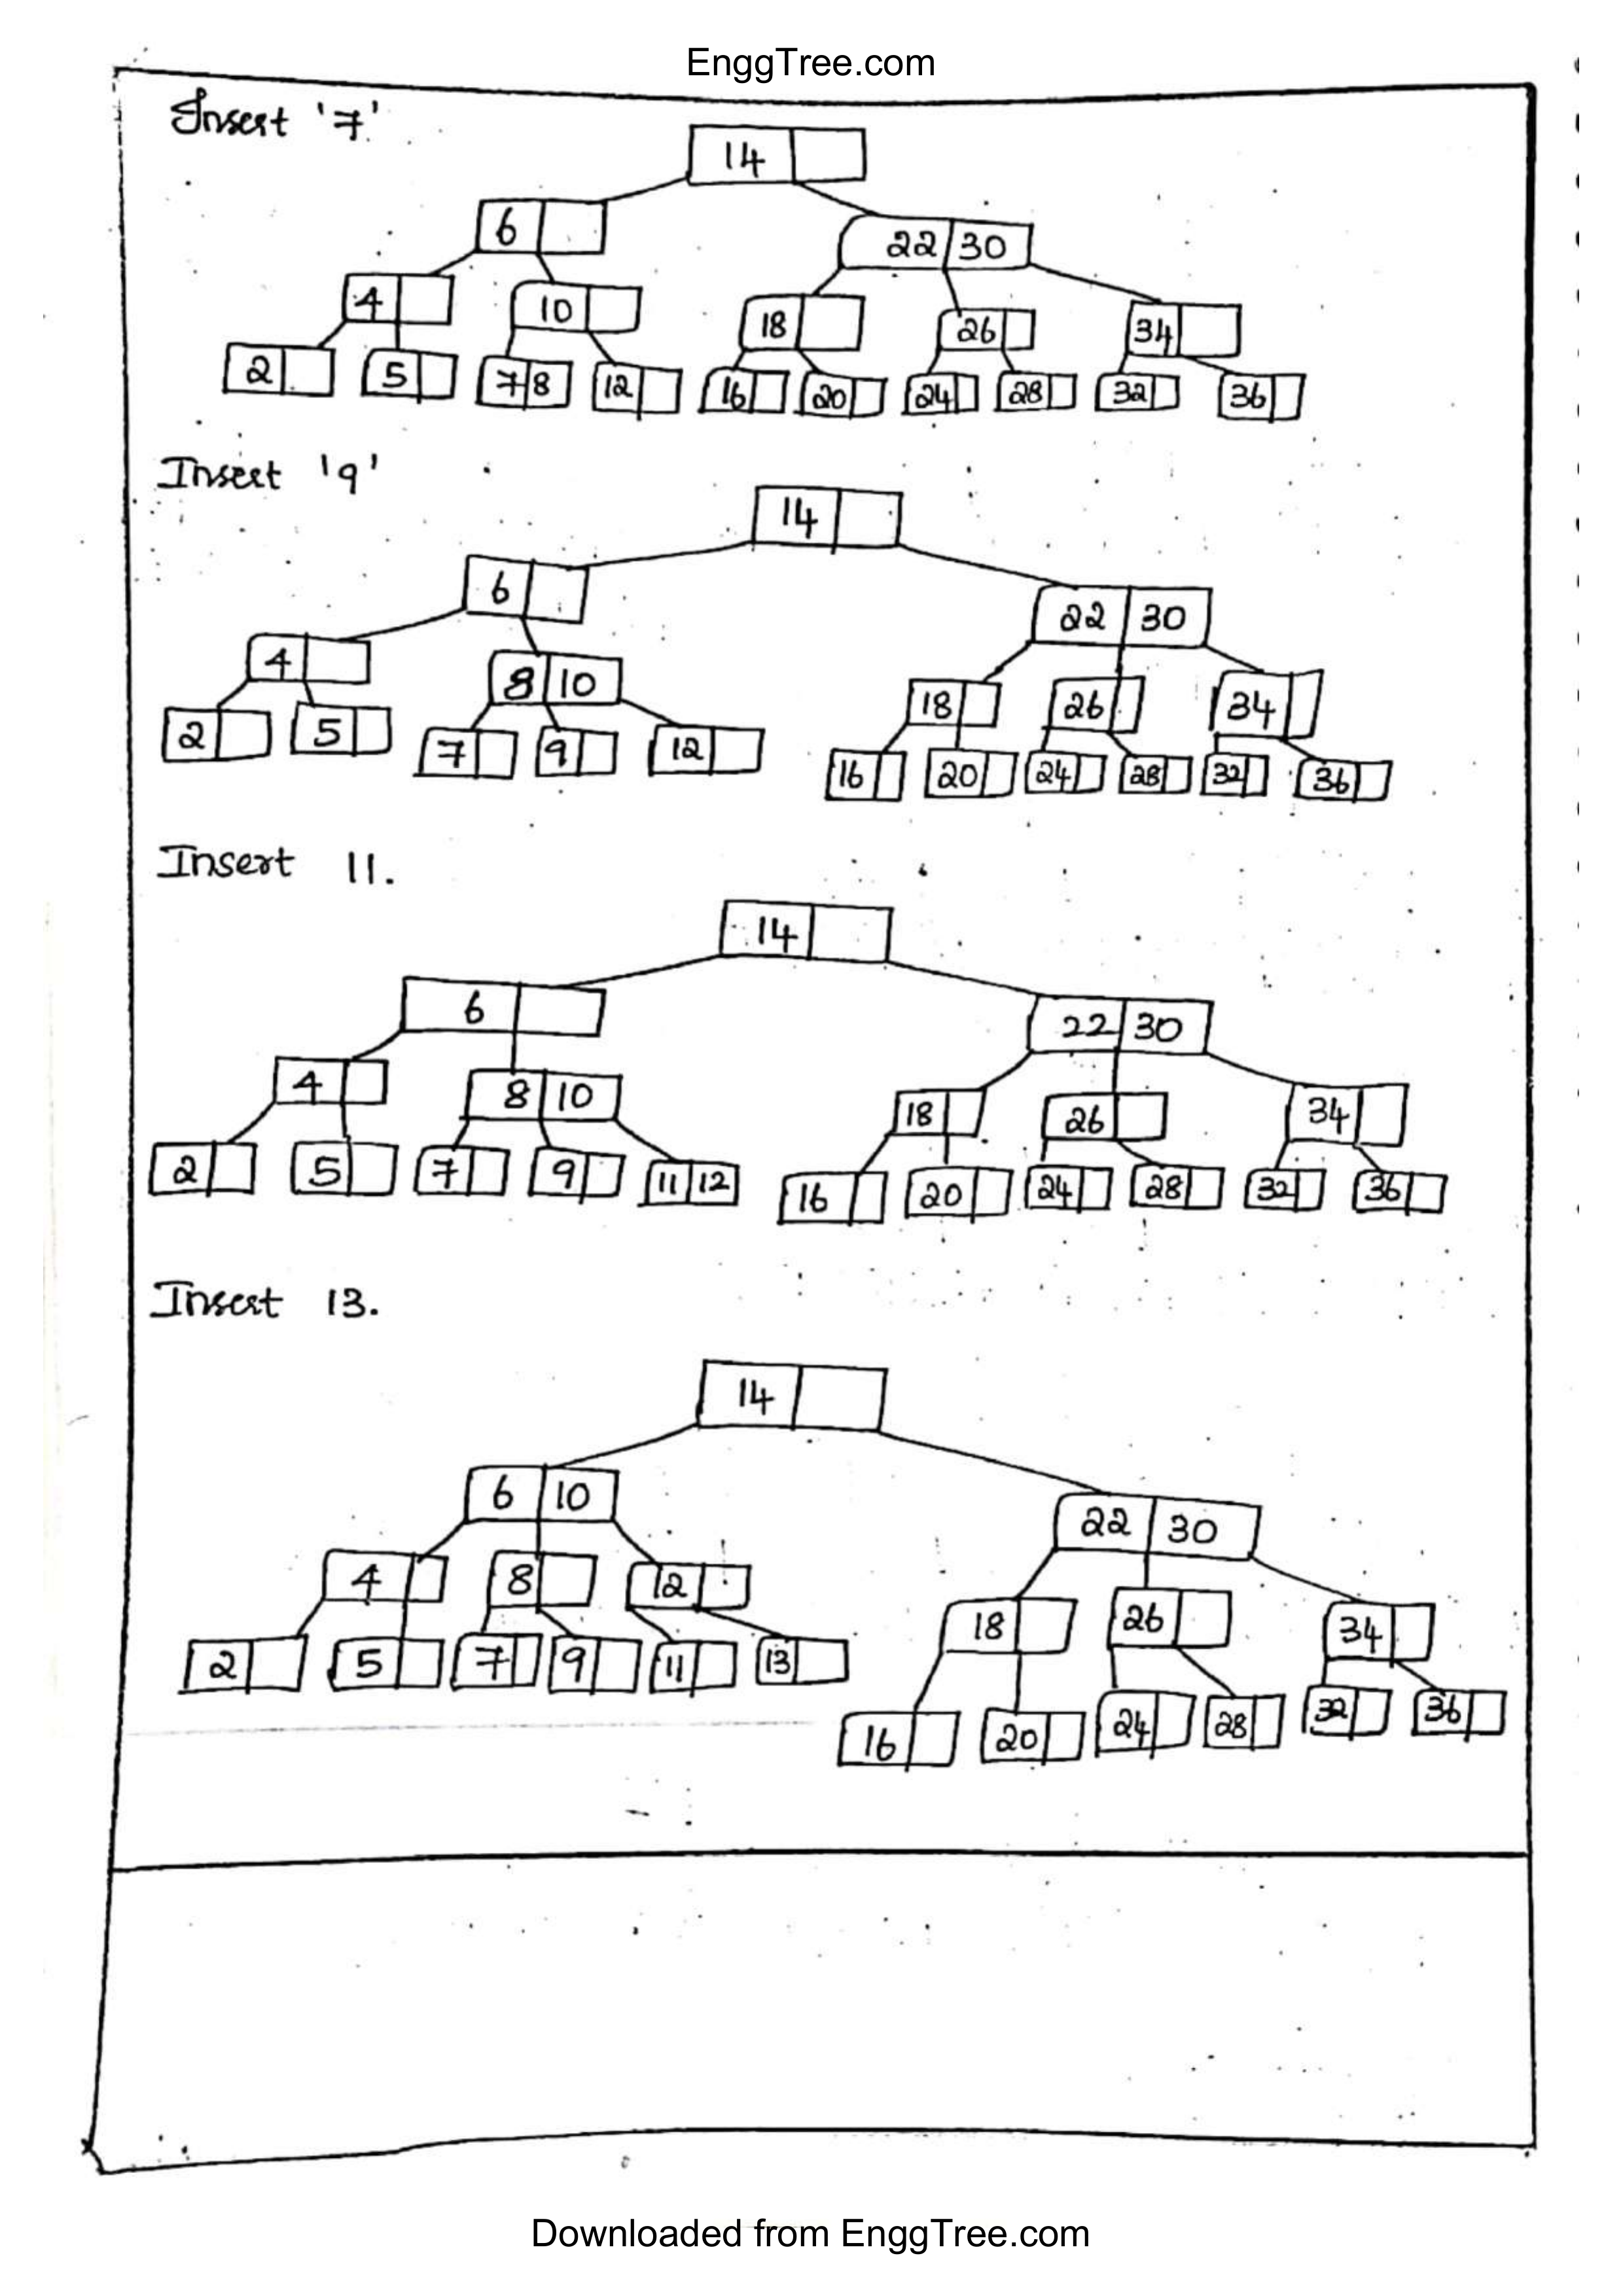 EnggTree.com
Insert '7'
14
6 22 30
4 10 18 26 34
2 5 7 8 12 16 20 24 28 32 36
Insert '9'
14
6 22 30
4 8 10 18 26 34
2 5 7 9 12 16 20 24 28 32 36
Insert 11.
14
6 22 30
4 8 10 18 26 34
2 5 7 9 11 12 16 20 24 28 32 36
Insert 13.
14
6 10 22 30
4 8 12 18 26 34
2 5 7 9 11 13 16 20 24 28 32 36
Downloaded from EnggTree.com